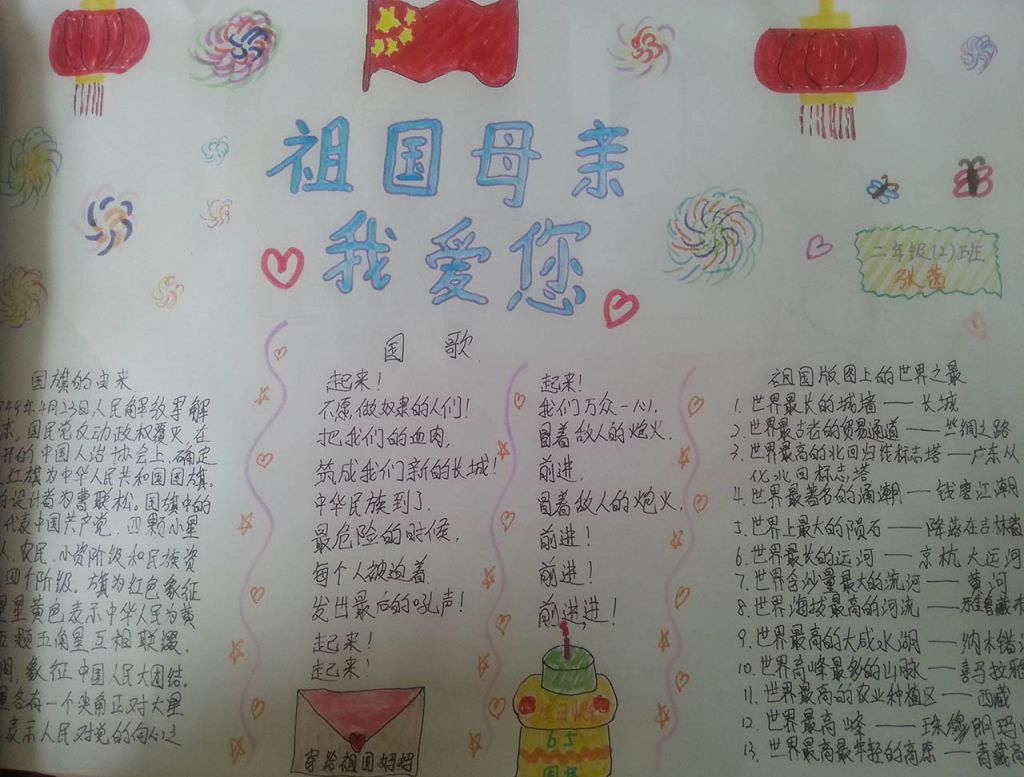 祖国母亲
我爱您
二年级(2)班
张茜
国旗的由来
949年4月23日人民解放军解
京,国民党反动政权覆灭,在
开的中国人治协会上,确定
红旗为中华人民共和国国旗,
的设计者为曾联松。国旗中的
代表中国共产党,四颗小星
人、农民、小资阶级和民族资
四个阶级。旗为红色象征
星呈黄色表示中华人民为黄
五颗五角星互相联缀、
间,象征中国人民大团结。
星各有一个尖角正对大星
表示人民对党的向心之
国 歌
起来!
不愿做奴隶的人们!
把我们的血肉,
筑成我们新的长城!
中华民族到了,
最危险的时候,
每个人被迫着
发出最后的吼声!
起来!
起来!
起来!
我们万众一心,
冒着敌人的炮火,
前进,
冒着敌人的炮火,
前进!
前进!
前进进!
寄给祖国妈妈
生日快
65
周年
祖国版图上的世界之最
1. 世界最长的城墙——长城
2. 世界最古老的贸易通道——丝绸之路
3. 世界最高的北回归线标志塔——广东从
化北回标志塔
4. 世界最著名的涌潮——钱塘江潮
5. 世界上最大的陨石——降落在吉林省
6. 世界最长的运河——京杭大运河
7. 世界含沙量最大的流河——黄河
8. 世界海拔最高的河流——雅鲁藏布
9. 世界最高的大咸水湖——纳木错
10. 世界高峰最多的山脉——喜马拉雅
11. 世界最高的农业种植区——西藏
12. 世界最高峰——珠穆朗玛
13. 世界最高最年轻的高原——青藏高